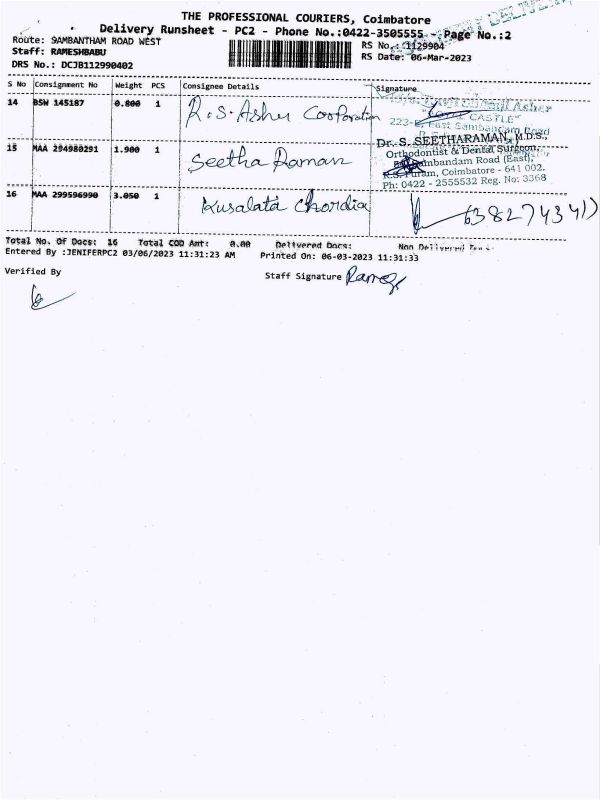 THE PROFESSIONAL COURIERS, Coimbatore
Delivery Runsheet - PC2 - Phone No.:0422-3505555 - Page No.:2
Route: SAMBANTHAM ROAD WEST
RS No.: 1129904
Staff: RAMESHBABU
RS Date: 06-Mar-2023
DRS No.: DCJB112990402
S No Consignment No Weight PCS Consignee Details Signature
14 BSW 145187 0.800 1 R.S. Asher Corporation
Asher
CASTLE"
223-E, East Sambandam Road
15 MAA 294980291 1.900 1 Seetha Raman
Dr. S. SEETHARAMAN, M.D.S.,
Orthodontist & Dental Surgeon,
Sambandam Road (East),
R.S. Puram, Coimbatore - 641 002.
Ph: 0422 - 2555532 Reg. No: 3368
16 MAA 299596990 3.050 1 Kusalata Chordia
Total No. Of Docs: 16 Total COD Amt: 0.00 Delivered Docs: Non Delivered
Entered By :JENIFERPC2 03/06/2023 11:31:23 AM Printed On: 06-03-2023 11:31:33
Verified By
Staff Signature